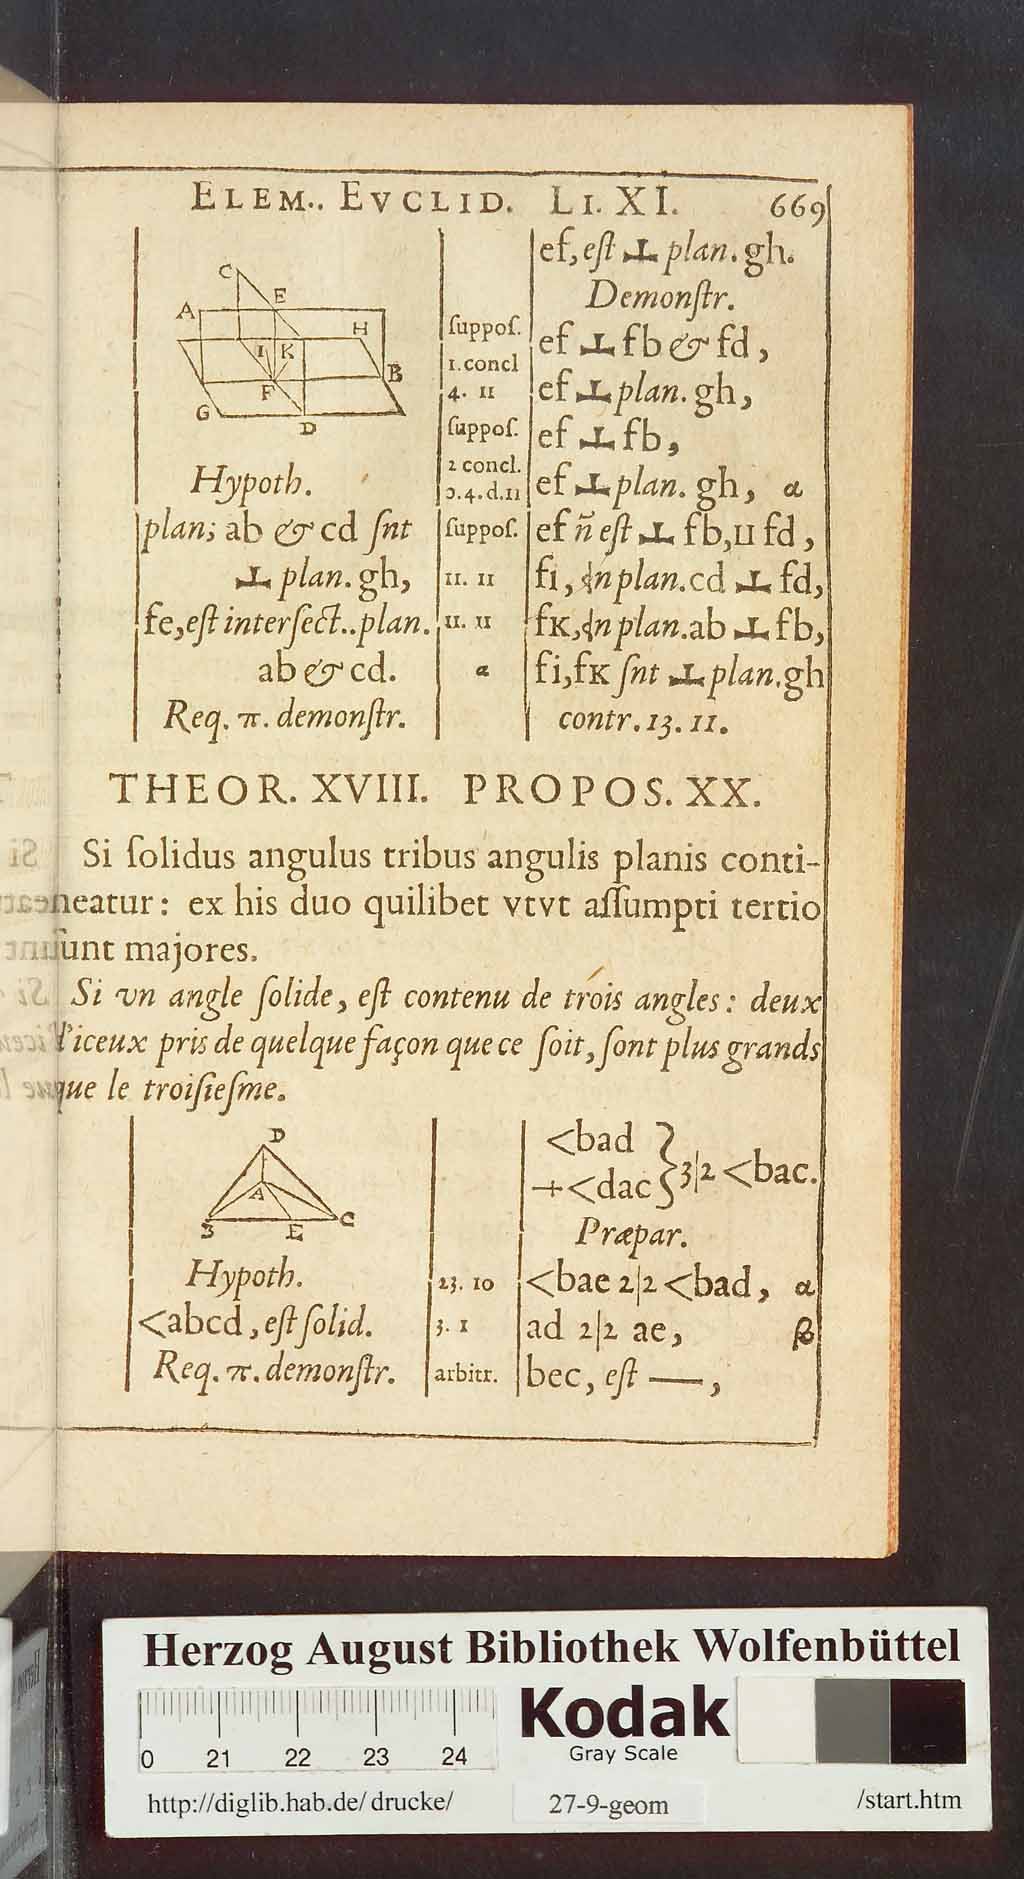 ELEM.. EVCLID. LI. XI. 669
C
E
A
H
I K
B
F
G
D
Hypoth.
plan; ab & cd ſnt
⊥ plan. gh,
fe, eſt interſect.. plan.
ab & cd.
Req. π. demonſtr.
ſuppoſ.
1. concl
4. 11
ſuppoſ.
2 concl.
3.4.d.11
ſuppoſ.
11. 11
11. 11
α
ef, eſt ⊥ plan. gh.
Demonſtr.
ef ⊥ fb & fd,
ef ⊥ plan. gh,
ef ⊥ fb,
ef ⊥ plan. gh, α
ef ñ eſt ⊥ fb, II fd,
fi, in plan. cd ⊥ fd,
fK, in plan. ab ⊥ fb,
fi, fK ſnt ⊥ plan. gh
contr. 13. 11.
THEOR. XVIII. PROPOS. XX.
Si ſolidus angulus tribus angulis planis conti-
neatur: ex his duo quilibet vtvt aſſumpti tertio
ſunt majores.
Si vn angle ſolide, eſt contenu de trois angles: deux
d'iceux pris de quelque façon que ce ſoit, ſont plus grands
que le troiſieſme.
D
A
B E C
Hypoth.
<abcd, eſt ſolid.
Req. π. demonſtr.
23. 10
3. 1
arbitr.
<bad
+<dac } 3|2 <bac.
Præpar.
<bae 2|2 <bad, α
ad 2|2 ae, β
bec, eſt —,
Herzog August Bibliothek Wolfenbüttel
Kodak
Gray Scale
0 21 22 23 24
http://diglib.hab.de/ drucke/ 27-9-geom /start.htm